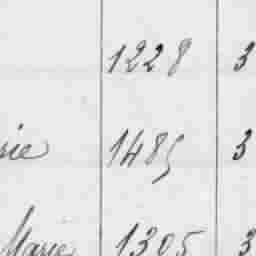 1228 3
rie 1485 3
Marie 1305 3